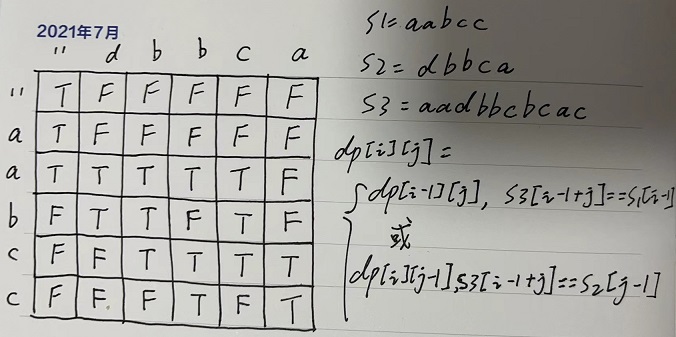 2021年7月
" d b b c a
" T F F F F F
a T F F F F F
a T T T T T F
b F T T F T F
c F F T T T T
c F F F T F T
S1=aabcc
S2=dbbca
S3=aadbbcbcac
dp[i][j]=
dp[i-1][j], S3[i-1+j]==S1[i-1]
或
dp[i][j-1],S3[i-1+j]==S2[j-1]